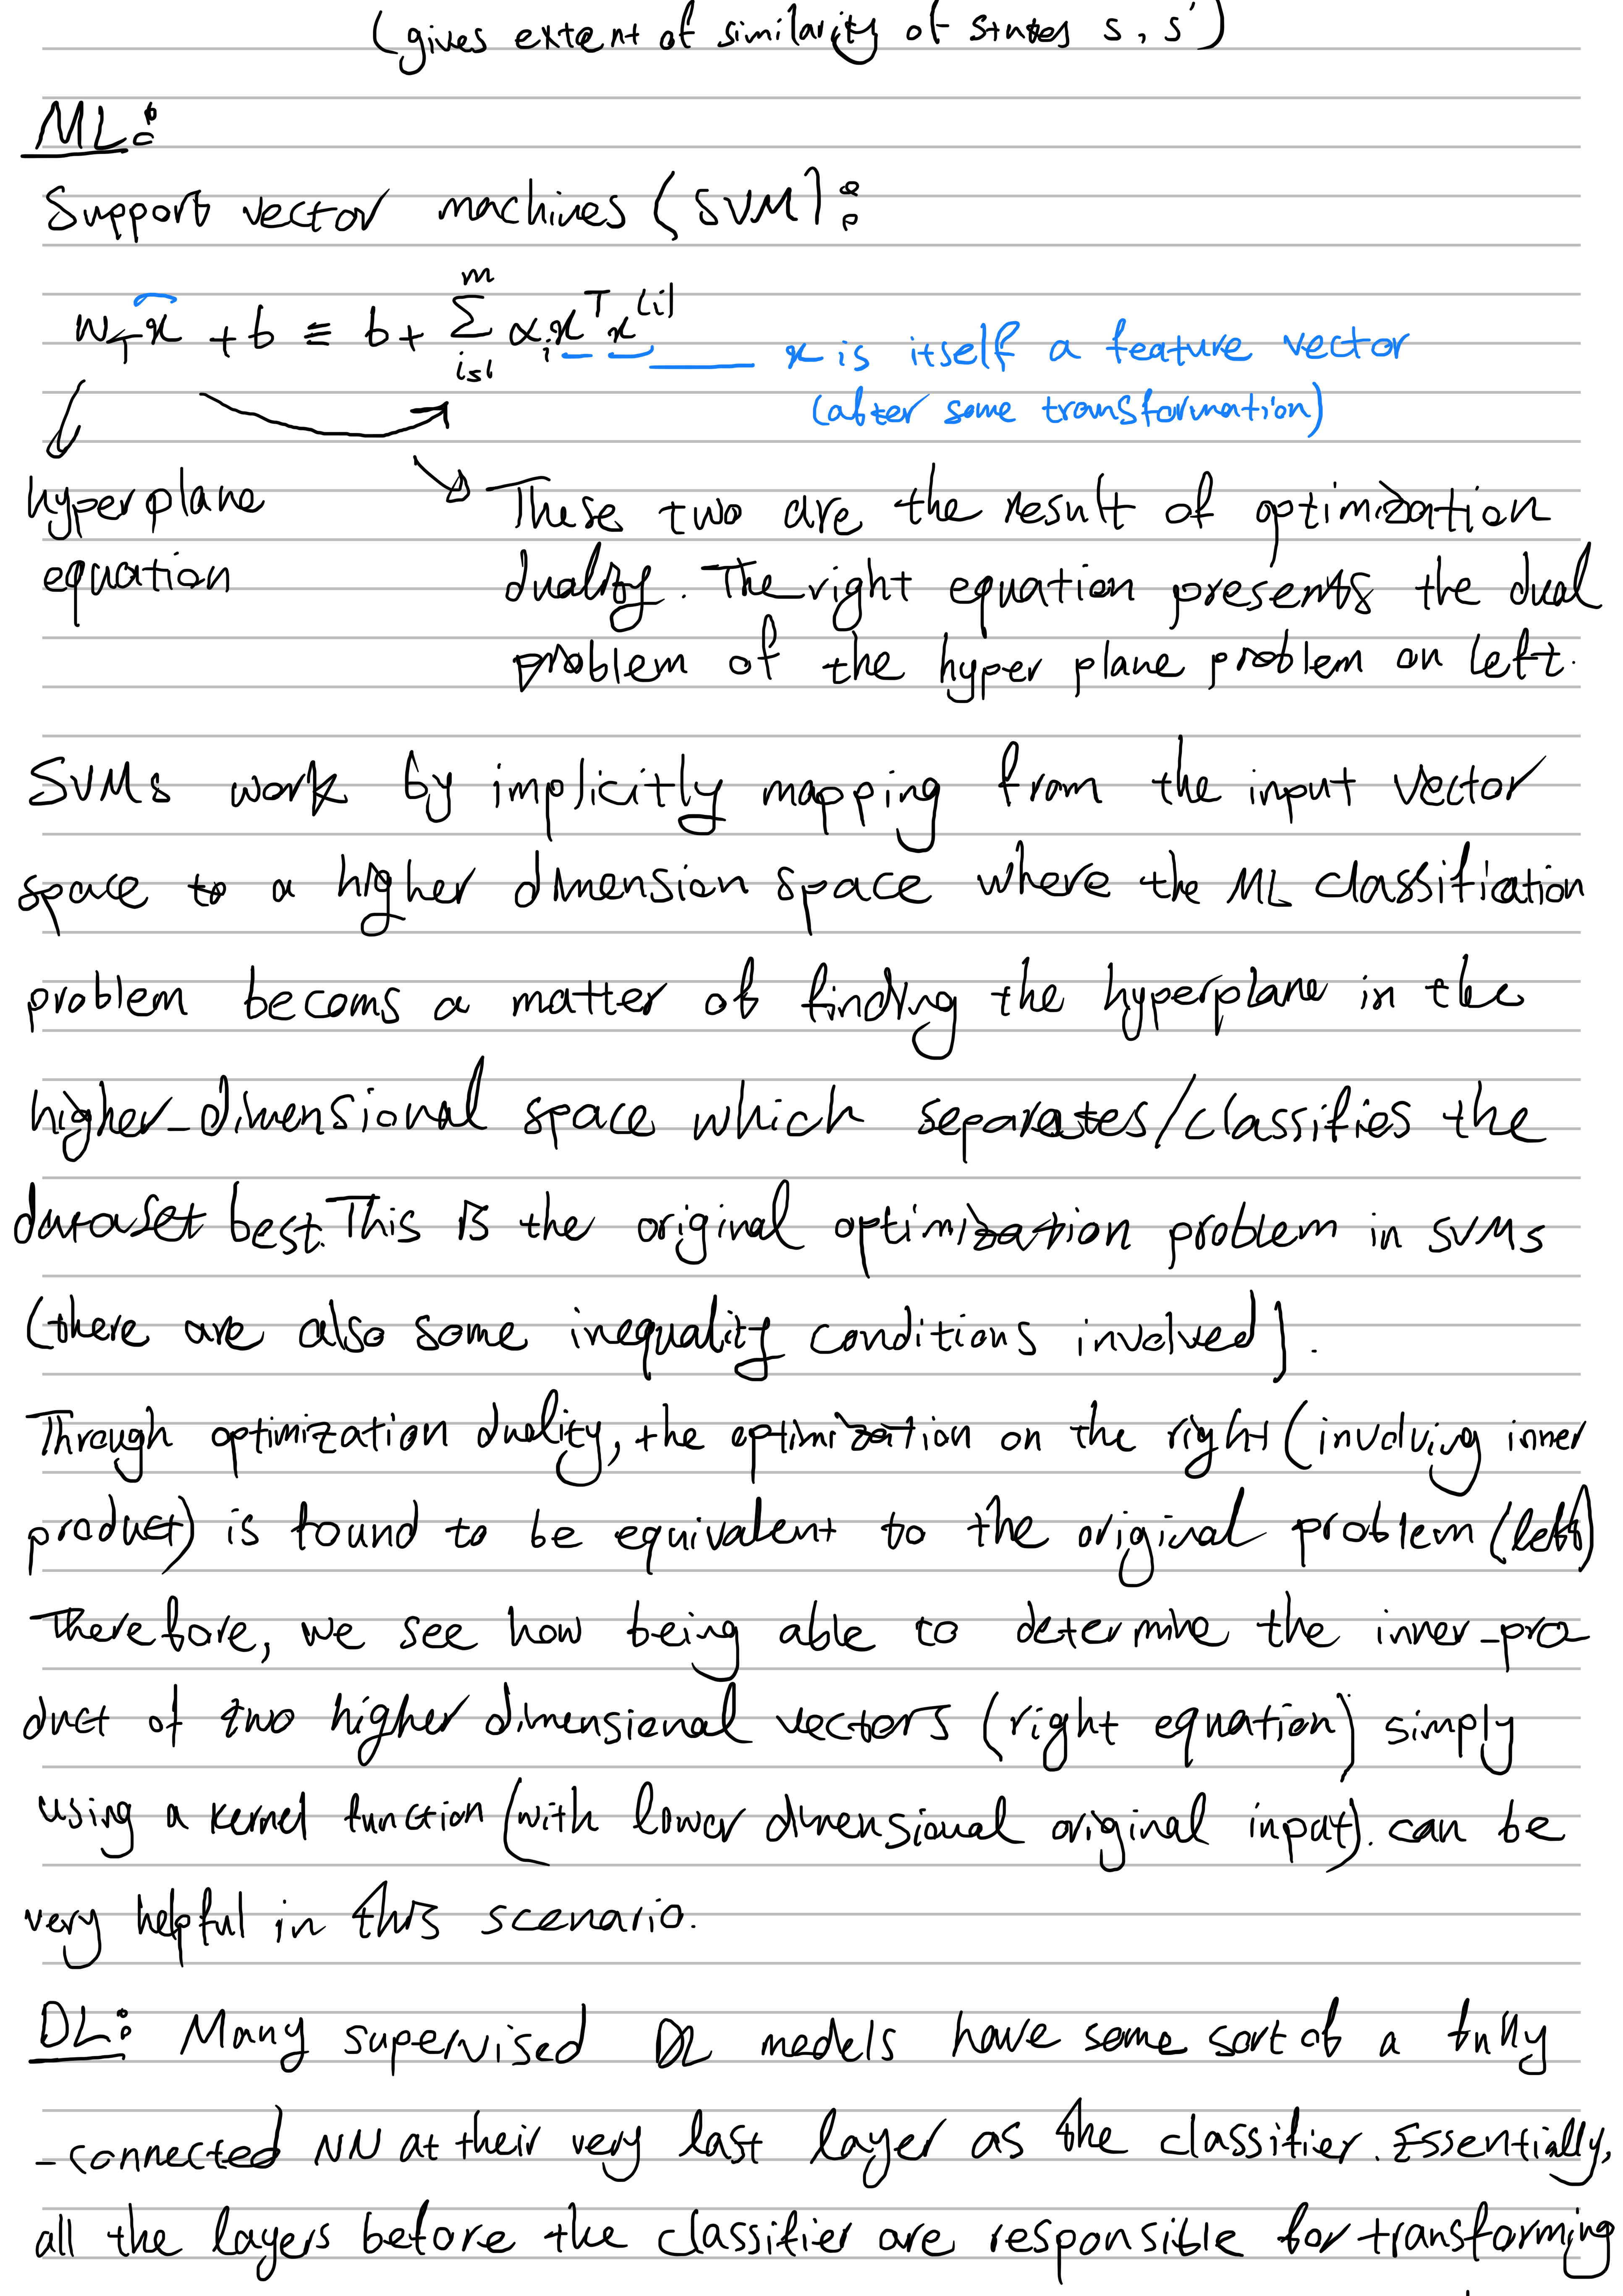 (gives extent of similarity of states s, s')
ML:
Support vector machines (SVM):
w_T x + b ≡ b + Σ_{i=1}^{m} α_i x^T x^(i)
x is itself a feature vector
(after some transformation)
hyperplane
equation
These two are the result of optimization
duality. The right equation presents the dual
problem of the hyper plane problem on left.
SVMs work by implicitly mapping from the input vector
space to a higher dimension space where the ML classification
problem becoms a matter of finding the hyperplane in the
higher-dimensional space which separates/classifies the
dataset best. This is the original optimization problem in SVMs
(there are also some inequality conditions involved).
Through optimization duality, the optimization on the right (involving inner
product) is found to be equivalent to the original problem (left)
Therefore, we see how being able to determine the inner-pro
duct of two higher dimensional vectors (right equation) simply
using a kernel function (with lower dimensional original input). can be
very helpful in this scenario.
DL: Many supervised DL models have some sort of a fully
-connected NN at their very last layer as the classifier. Essentially,
all the layers before the classifier are responsible for transforming